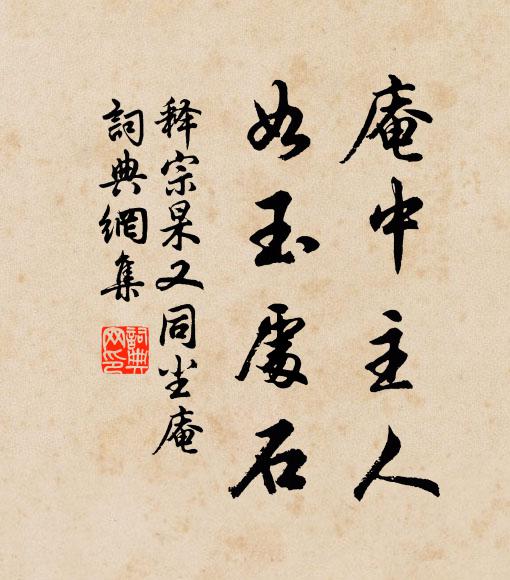 庵中主人
如玉處石
释宗杲又同尘庵
詞典網集
詞典
网印